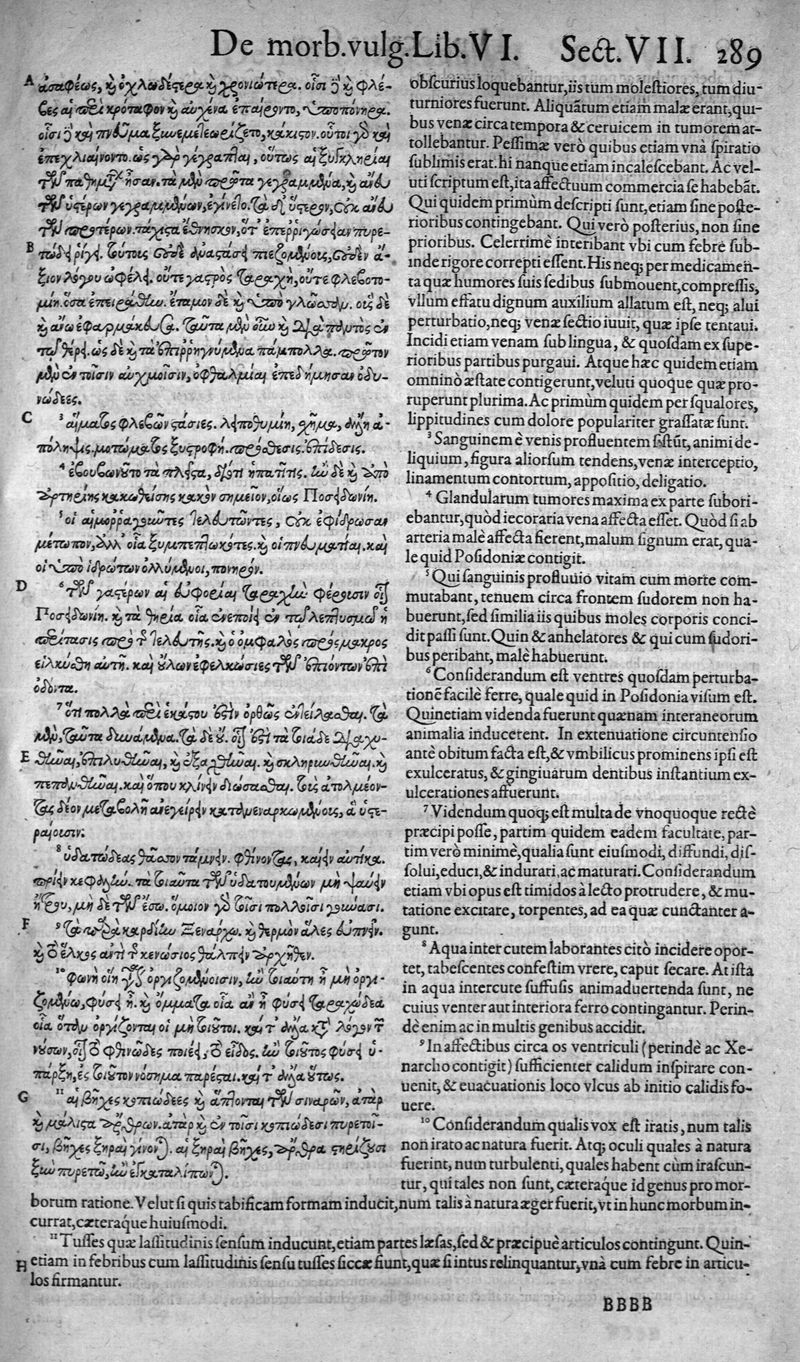 De morb. vulg. Lib. VI. Sect. VII. 289
A ἀσαφέως, καὶ ὀχλωδέστερα καὶ χρονιώτερα. οἷσι δὲ καὶ φλέ-
βες αἱ περὶ κρόταφον καὶ αὐχένα ἐπαίροντο, ὑποπόνηρα.
οἷσι δὲ καὶ πνεῦμα ξυνεμετεωρίζετο, κάκιστον. οὗτοι γὰρ καὶ
ἐπεχλιαίνοντο. ὡς γὰρ γέγραπται, οὕτως αἱ ξυγκληρίαι
τῶν παθημάτων ἦσαν. τὰ μὲν πρῶτα γεγραμμένα, καὶ ἄνευ
τῶν ὑστέρων γεγραμμένων, ἐγίνετο. τὰ δὲ ὕστερον, οὐκ ἄνευ
τῶν προτέρων. τάχιστα ἔθνησκον, ὅτ' ἐπερριγώσαν πυρε-
B τώδει ῥίγει. τούτοις οὐδὲ ἀνάστασις πιεζομένοις, οὐδὲν ἄ-
ξιον λόγου ὠφέλει. οὔτε γαστρὸς ταραχὴ, οὔτε φλεβοτο-
μίη. ὅσα ἐπειράθην. ἔταμον δὲ καὶ ὑπὸ γλῶσσαν. οὓς δὲ
καὶ ἄνω ἐφαρμάκευσα. ταῦτα μὲν οὖν καὶ διὰ παντὸς ἐν
τῷ θέρει. ὡς δὲ καὶ τὰ ἐπιρρηγνύμενα πάμπολλα. πρῶτον
μὲν ἐν τοῖσιν αὐχμοῖσιν, ὀφθαλμίαι ἐπεδήμησαν ὀδυ-
νώδεες.
C ³αἵματος φλεβῶν στάσιες. λειποθυμίη, σχῆμα, ἄλλῃ ἀ-
πόληψις. μοτώματος ξυστροφή. πρόσθεσις. ἐπίδεσις.
⁴ἐβουβωνοῦτο τὰ πλεῖστα, διότι ἡπατῖτις. ἢν δὲ καὶ ἀπὸ
ἀρτηρίης κακωθείσης κακὸν σημεῖον, οἵως Ποσειδωνίη.
⁵οἱ αἱμορραγεῦντες τελευτῶντες, οὐκ ἐφίδρωσαν
μέτωπον, ἀλλ' οἷα ξυμπεπτωκότες. καὶ οἱ πνευματίαι. καὶ
οἱ ὑπὸ ἱδρώτων ὀλλύμενοι, πονηρόν.
D ⁶τῶν γαστέρων αἱ εὐφορίαι ταραχὴν φέρουσιν οἷον
Ποσειδωνίη. καὶ τὰ θηρία οἷα ἐνεποίει ἐν τῷ λεπτυσμῷ ἡ
περίτασις πρὸ τῆς τελευτῆς. καὶ ὁ ὀμφαλὸς πρόμακρος
εἱλκώθη αὐτῇ. καὶ οὔλων ἐφελκώσιες τῶν ἐπιόντων ἐπὶ
ὀδόντα.
⁷ὅτι πολλὰ περὶ ἑκάστου ἐστὶν ὀρθῶς ἐντείλασθαι. τὰ
μὲν, ταῦτα δυνάμενα. τὰ δὲ οὔ. οἷον ἐστὶ τὰ τοιάδε διαχυ-
E θῆναι, ἐπιλυθῆναι, καὶ ἐξαχθῆναι. καὶ σκληρυνθῆναι. καὶ
πεπανθῆναι. καὶ ὅπου κλίνην διώσασθαι. τοὺς ἀτολμέον-
τας δέον μεταβολῇ ἀνεγείρειν καταναρκωμένους, ἃ ὑστε-
ρέουσιν:
⁸ὑδατώδεας θᾶσσον τάμνειν. φθίνοντας, καίειν αὐτίκα.
πρίειν κεφαλήν. τὰ τοιαῦτα τῶν ὑδατουμένων μὴ ψαύειν
ἤτρου, μὴ δὲ τῶν ἔσω. ὅμοιον γὰρ τοῖσι πολλοῖσι γούνασι.
F ⁹τὰ παρὰ καρδίην Ξενάρχῳ. καὶ θερμὸν ἁλὲς εὐπνεῖν.
καὶ τὸ ἕλκος ἀντὶ τῆς κενώσιος θάλπειν ἀρχῆθεν.
¹⁰φωνὴ οἵη τῶν ὀργιζομένοισιν, ἢν τοιαύτη ᾖ μὴ ὀργι-
ζομένῳ, φύσει ᾖ. καὶ ὄμματα οἷα ἂν ᾖ φύσει ταραχώδεα
οἷα ὅταν ὀργίζονται οἱ μὴ τοιοῦτοι. καὶ τ' ἄλλα κατὰ λόγον τῆς
νούσων, οἷον τὸ φθινῶδες ποιεῖ, τὸ εἶδος. ἢν τοιοῦτος φύσει ὑ-
πάρξῃ, ἐς τοιοῦτον νόσημα παρέσται. καὶ τ' ἄλλα οὕτως.
G ¹¹αἱ βῆχες κοπιώδεες καὶ ἅπτονται τῶν σιναρῶν, ἀτὰρ
καὶ μάλιστα ἄρθρων. ἀτὰρ καὶ ἐν τοῖσι κοπιώδεσι πυρετοῖ-
σι, βῆχες ξηραὶ γίνονται. αἱ ξηραὶ βῆχες, ἄρθρα στηρίζουσι
ξὺν πυρετῷ, ἢν ἐγκαταλίπωνται.
obscurius loquebantur, iis tum molestiores, tum diu-
turniores fuerunt. Aliquātum etiam malæ erant, qui-
bus venæ circa tempora & ceruicem in tumorem at-
tollebantur. Pessimæ verò quibus etiam vnà spiratio
sublimis erat. hi nanque etiam incalescebant. Ac vel-
uti scriptum est, ita affectuum commercia se habebāt.
Qui quidem primùm descripti sunt, etiam sine poste-
rioribus contingebant. Qui verò posterius, non sine
prioribus. Celerrimè interibant vbi cum febre sub-
inde rigore correpti essent. His neq; per medicamen-
ta quæ humores suis sedibus submouent, compressis,
vllum effatu dignum auxilium allatum est, neq; alui
perturbatio, neq; venæ sectio iuuit, quæ ipse tentaui.
Incidi etiam venam sub lingua, & quosdam ex supe-
rioribus partibus purgaui. Atque hæc quidem etiam
omninò æstate contigerunt, veluti quoque quæ pro-
ruperunt plurima. Ac primùm quidem per squalores,
lippitudines cum dolore populariter grassatæ sunt.
³Sanguinem è venis profluentem sistūt, animi de-
liquium, figura aliorsum tendens, venæ interceptio,
linamentum contortum, appositio, deligatio.
⁴Glandularum tumores maxima ex parte subori-
ebantur, quòd iecoraria vena affecta esset. Quòd si ab
arteria malè affecta fierent, malum signum erat, qua-
le quid Posidoniæ contigit.
⁵Qui sanguinis profluuio vitam cum morte com-
mutabant, tenuem circa frontem sudorem non ha-
buerunt, sed similia iis quibus moles corporis conci-
dit passi sunt. Quin & anhelatores & qui cum sudori-
bus peribant, malè habuerunt.
⁶Considerandum est ventres quosdam perturba-
tionē facilè ferre, quale quid in Posidonia visum est.
Quinetiam videnda fuerunt quænam interaneorum
animalia inducerent. In extenuatione circuntensio
antè obitum facta est, & vmbilicus prominens ipsi est
exulceratus, & gingiuarum dentibus instantium ex-
ulcerationes affuerunt.
⁷Videndum quoq; est multa de vnoquoque rectè
præcipi posse, partim quidem eadem facultate, par-
tim verò minimè, qualia sunt eiusmodi, diffundi, dis-
solui, educi, & indurari, ac maturari. Considerandum
etiam vbi opus est timidos à lecto protrudere, & mu-
tatione excitare, torpentes, ad ea quæ cunctanter a-
gunt.
⁸Aqua inter cutem laborantes citò incidere opor-
tet, tabescentes confestim vrere, caput secare. At ista
in aqua intercute suffusis animaduertenda sunt, ne
cuius venter aut interiora ferro contingantur. Perin-
dè enim ac in multis genibus accidit.
⁹In affectibus circa os ventriculi (perindè ac Xe-
narcho contigit) sufficienter calidum inspirare con-
uenit, & euacuationis loco vlcus ab initio calidis fo-
uere.
¹⁰Considerandum qualis vox est iratis, num talis
non irato ac natura fuerit. Atq; oculi quales à natura
fuerint, num turbulenti, quales habent cùm irascun-
tur, qui tales non sunt, cæteraque id genus pro mor-
borum ratione. Velut si quis tabificam formam inducit, num talis à natura æger fuerit, vt in hunc morbum in-
currat, cæteraque huiusmodi.
¹¹Tusses quæ lassitudinis sensum inducunt, etiam partes læsas, sed & præcipuè articulos contingunt. Quin-
H etiam in febribus cum lassitudinis sensu tusses siccæ fiunt, quæ si intus relinquantur, vnà cum febre in articu-
los firmantur.
BBBB